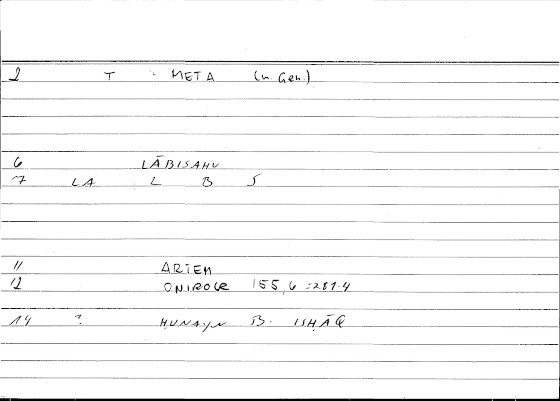 2 T META (u. Gen.)
6 LĀBISAHU
7 LA L B S
11 ARTEM
12 ONIROCR 155,6 = 281.4
14 ? ḤUNAYN B. ISḤĀQ